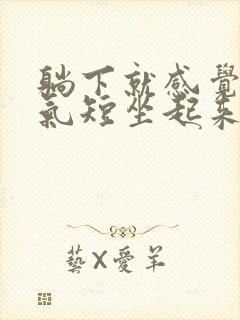 躺下就感覺
氣短坐起來
藝X愛羊